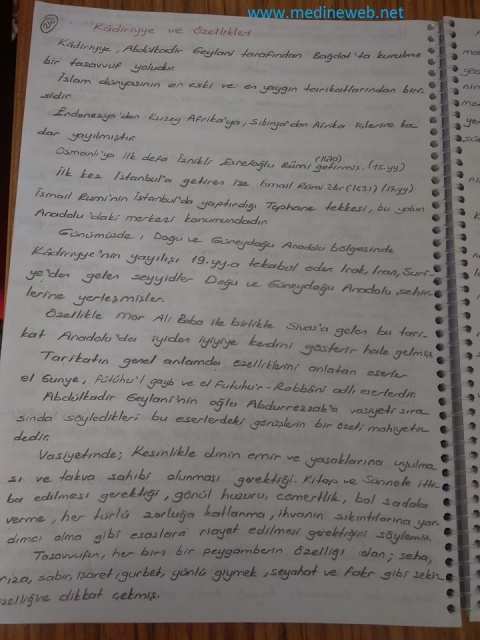 www.medineweb.net
20
Kâdiriyye ve Özellikleri
Kâdiriyye, Abdülkadir Geylani tarafından Bağdat'ta kurulmuş
bir tasavvuf yoludur.
İslam dünyasının en eski ve en yaygın tarikatlarından biri-
sidir.
Endonezya'dan Kuzey Afrika'ya, Sibirya'dan Afrika içlerine ka-
dar yayılmıştır.
Osmanlı'ya ilk defa İznikli Eşrefoğlu Rûmi (1470) getirmiş. (15.yy)
İlk kez İstanbul'a getiren ise İsmail Rûmi'dir (1631) (17.yy)
İsmail Rumi'nin İstanbul'da yaptırdığı Tophane tekkesi, bu yolun
Anadolu'daki merkezi konumundadır.
Günümüzde, Doğu ve Güneydoğu Anadolu bölgesinde
Kâdiriyye'nin yayılışı 19.yy.a tekabül eder. Irak, İran, Suri-
ye'den gelen seyyidler Doğu ve Güneydoğu Anadolu şehir-
lerine yerleşmişler.
Özellikle Mor Ali Baba ile birlikte Sivas'a gelen bu tari-
kat Anadolu'da iyiden iyiyiye kendini gösterir hale gelmiş.
Tarikatın genel anlamda özelliklerini anlatan eserler
el Gunye, Fütûhu'l gayb ve el Futuhu'r-Rabbâni adlı eserlerdir.
Abdülkadir Geylani'nin oğlu Abdurrezzak'a vasiyeti sıra
sında söyledikleri bu eserlerdeki görüşlerin bir özeti mahiyetin
dedir.
Vasiyetinde; Kesinlikle dinin emir ve yasaklarına uyulma-
sı ve takva sahibi olunması gerektiği. Kitap ve Sünnete itti-
ba edilmesi gerektiği, gönül huzuru, cömertlik, bol sadaka
verme, her türlü zorluğa katlanma, ihvanın sıkıntılarına yar-
dımcı olma gibi esaslara riayet edilmesi gerektiğini söylemiş.
Tasavvufun, her biri bir peygamberin özelliği olan; seha,
rıza, sabır, işaret, gurbet, yünlü giymek, seyahat ve fakr gibi sekiz
özelliğine dikkat çekmiş.